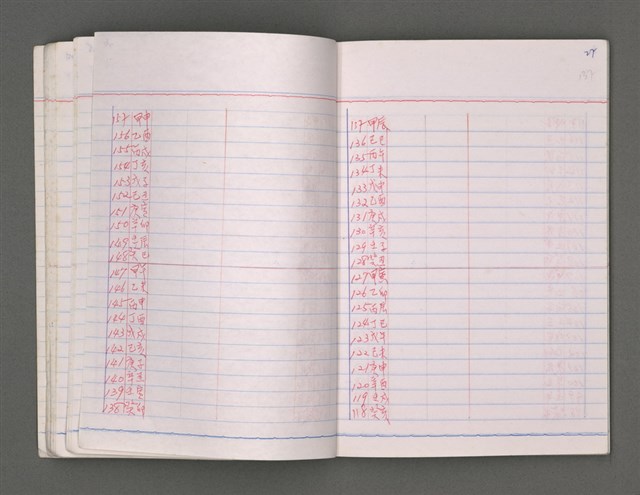 157 甲申
156 乙酉
155 丙戌
154 丁亥
153 戊子
152 己丑
151 庚寅
150 辛卯
149 壬辰
148 癸巳
147 甲午
146 乙未
145 丙申
144 丁酉
143 戊戌
142 己亥
141 庚子
140 辛丑
139 壬寅
138 癸卯
137 甲辰
136 乙巳
135 丙午
134 丁未
133 戊申
132 己酉
131 庚戌
130 辛亥
129 壬子
128 癸丑
127 甲寅
126 乙卯
125 丙辰
124 丁巳
123 戊午
122 己未
121 庚申
120 辛酉
119 壬戌
118 癸亥